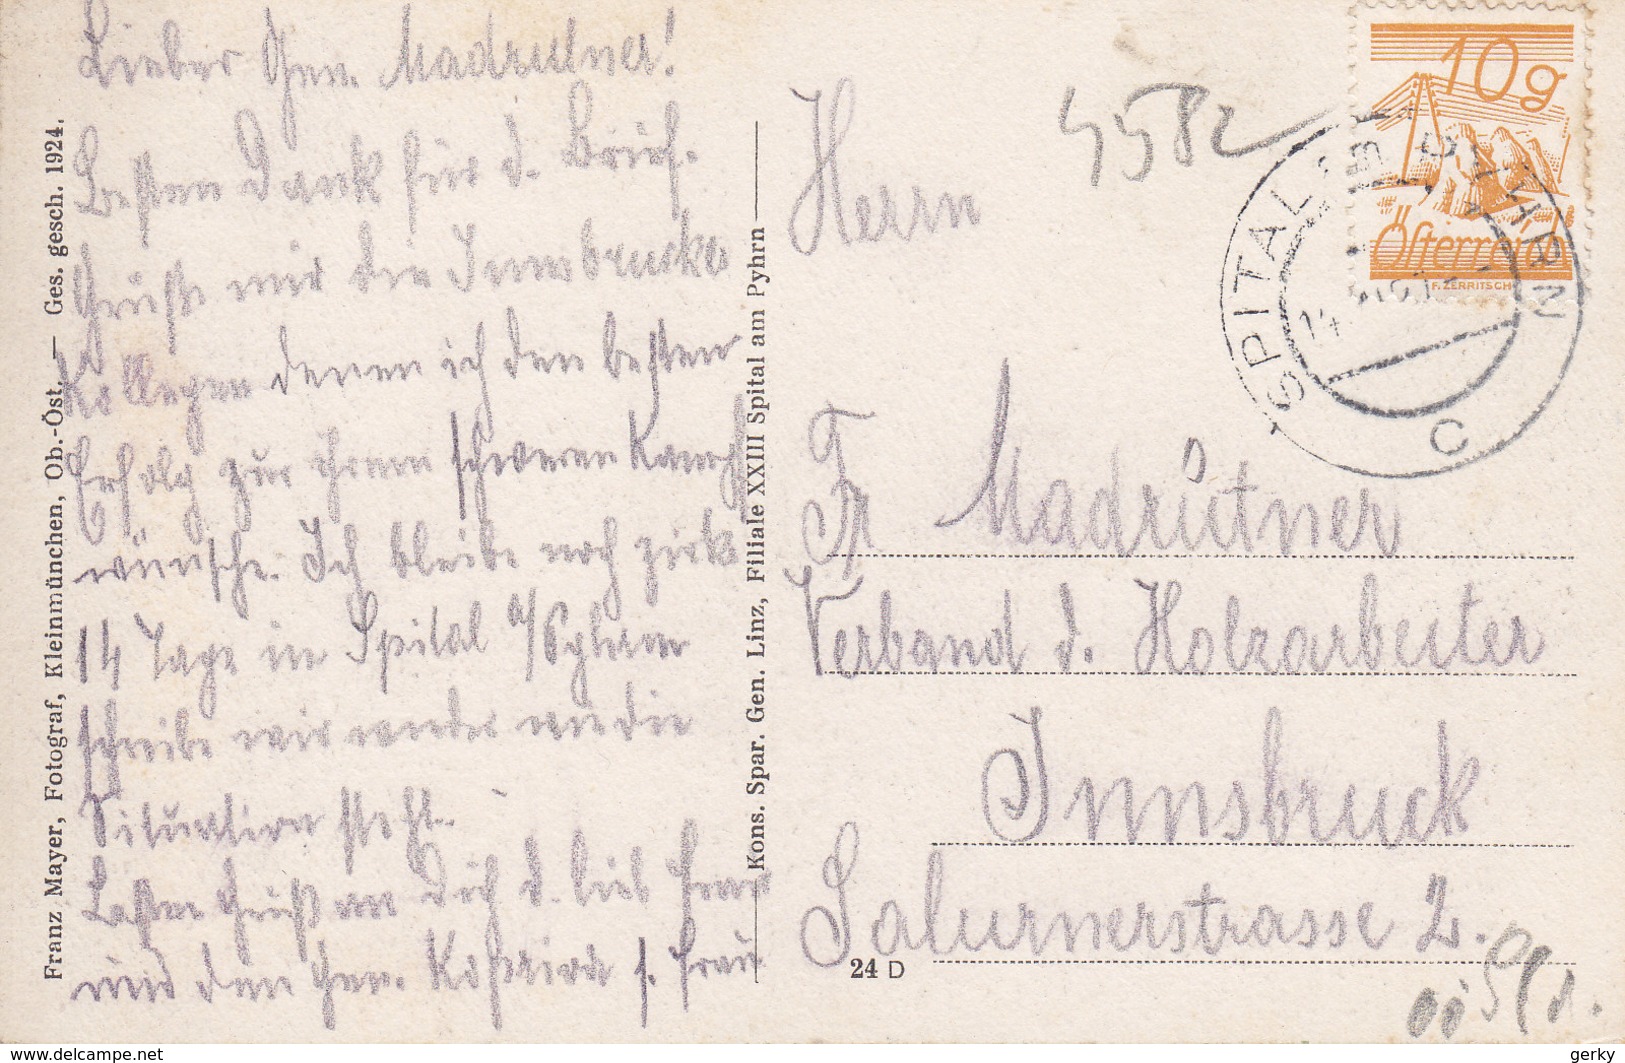 Lieber Gen. Madrutner!
Besten Dank für d. Brief.
Grüße mir die Innsbrucker
Kollegen denen ich den besten
Erfolg zur ihrem schweren Kampf
wünsche. Ich bleibe noch zirka
14 Tage in Spital a/Pyhrn
schreibe mir wieder wie die
Situation steht.
Besten Gruß an Dich d. lieb Frau
und den Gen. s. Frau
Franz Mayer, Fotograf, Kleinmünchen, Ob.-Öst. — Ges. gesch. 1924.
Kons. Spar. Gen. Linz, Filiale XXIII Spital am Pyhrn
4582
10g
Österreich
F. ZERRITSCH
SPITAL PYHRN
14
C
Herrn
Fr Madrutner
Verband d. Holzarbeiter
Innsbruck
Salurnerstrasse 2.
24 D
www.delcampe.net
gerky